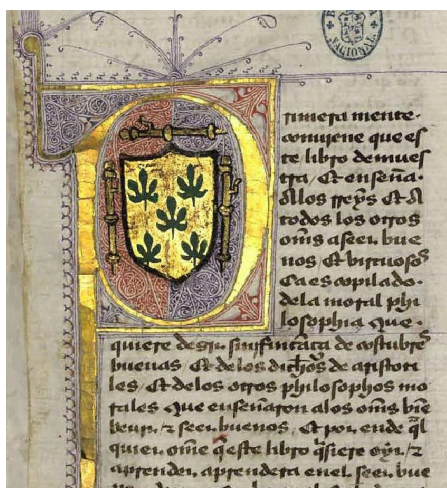 rimera mente.
conviene que es
te libro demues
tra, Et enseña.
Alos rreys Et A
todos los otros
oms aseer. bue
nos Et virtuosos
Ca es copilado.
dela moral phi
losophia que.
quiere desir sinificança de costubres
buenas, Et delos dichos de aristoti
les, Et delos otros philosophos mo
rales que enseñaron alos oms bie
beuir, z seer. buenos, Et por. ende ql
quier. ome q este libro qsiere oyr. z
aprender, aprendera enel. seer. bue
NACIONAL